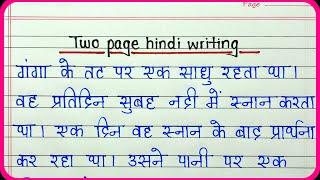 Page
Two page hindi writing
गंगा के तट पर एक साधु रहता था।
वह प्रतिदिन सुबह नदी में स्नान करता
था। एक दिन वह स्नान के बाद प्रार्थना
कर रहा था। उसने पानी पर एक